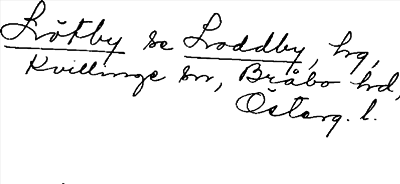 Lötby se Loddby, hg,
Kvillinge sn, Bråbo hd,
Österg. l.